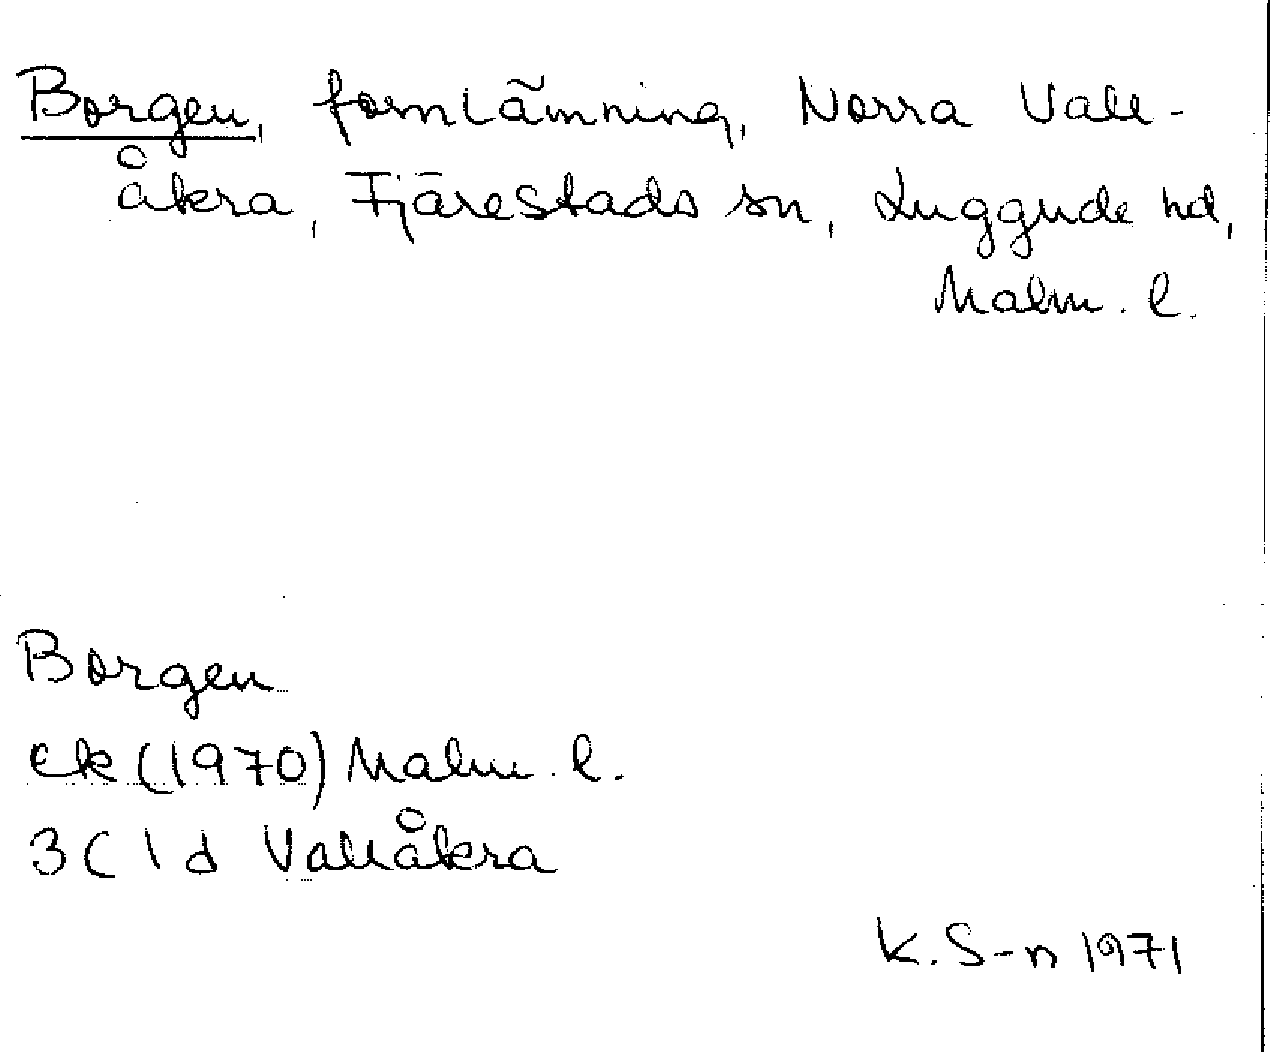 Borgen, fornlämning, Norra Vall-
åkra, Fjärestads sn, Luggude hd,
Malm. l.
Borgen
ek (1970) Malm. l.
3C 1d Vallåkra
K. S-n 1971